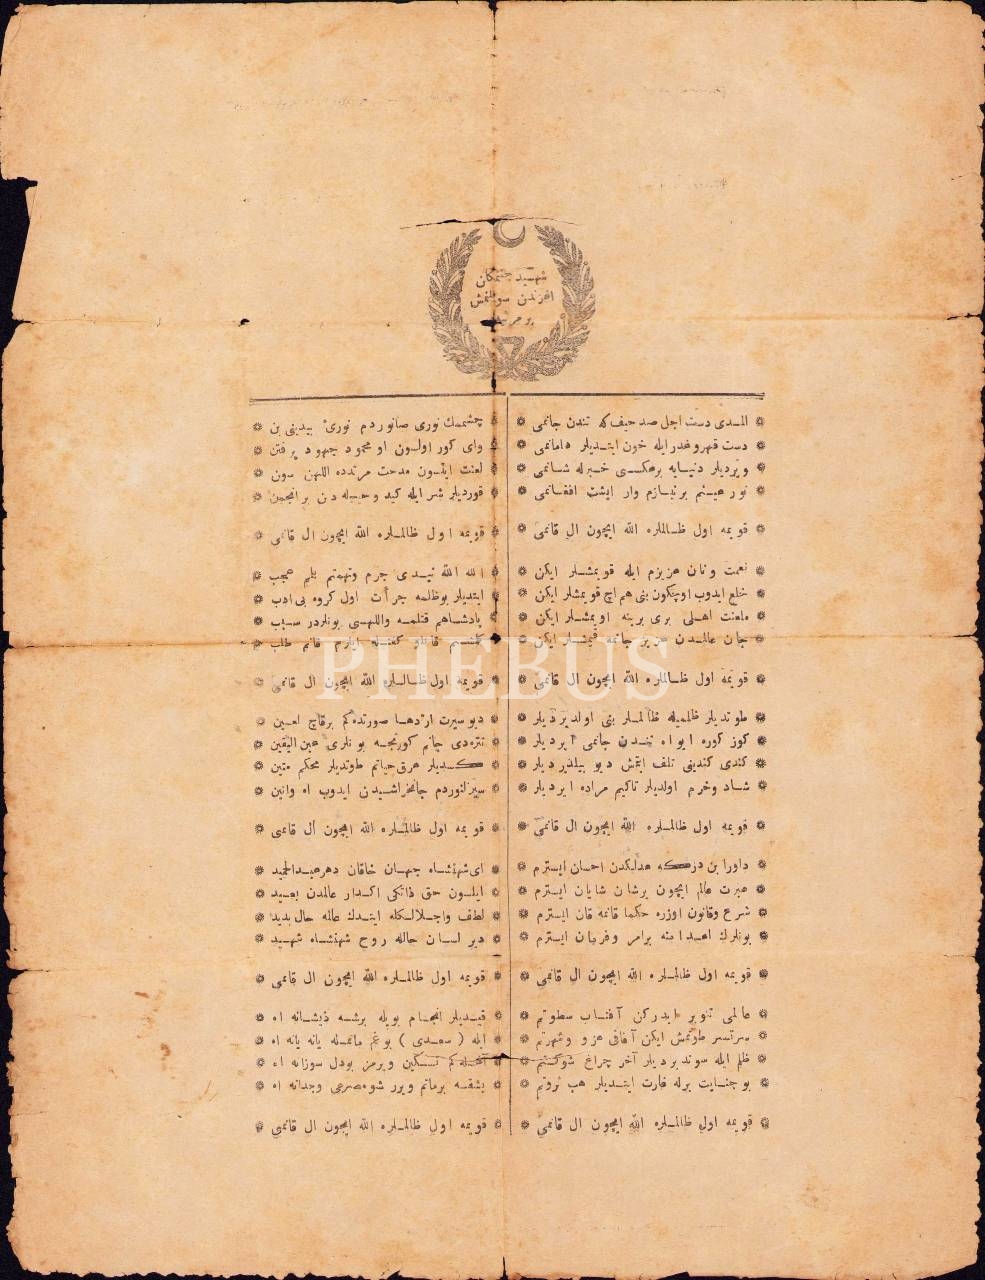 شهيد جنتمكان
اغزندن سويلنمش
بو مرثيه
المدى دست اجل صد حيف كه تندن جانمى
دست قهر و غدر ايله خون ايتديلر دامانمى
ويرديلر دنيايه برعكسى خبرله شانمى
نور عينم برنيازم وار ايشت افغانمى
قويمه اول ظالملره الله ايچون ال قانمى
نعمت و نان عزيزم ايله قويمشلر ايكن
خلع ايدوب اوچ كون بنى هم اچ قويمشلر ايكن
ملعنت اهلى برى برينه اويمشلر ايكن
جان عالمدن عزيز جانمه قيمشلر ايكن
قويمه اول ظالملره الله ايچون ال قانمى
طوتديلر ظلميله ظالملر بنى اولديرديلر
كوز كوره ايواه تندن جانمى ايرديلر
كندى كندينى تلف ايتمش ديو بيلديرديلر
شاد وخرم اولديلر تاكيم مراده ايرديلر
قويمه اول ظالملره الله ايچون ال قانمى
داورا بن دركه عدلكدن احسان ايسترم
عبرت عالم ايچون برشان شايان ايسترم
شرع وقانون اوزره حكما قانمه قان ايسترم
بونلرك اعدامنه برامر وفرمان ايسترم
قويمه اول ظالملره الله ايچون ال قانمى
عالمى تنوير ايدركن آفتاب سطوتم
سرتسر طوتمش ايكن آفاقى عز و شهرتم
ظلم ايله سوندرديلر آخر چراغ شوكتم
بوجنايت برله غارت ايتديلر هب ثروتم
قويمه اول ظالملره الله ايچون ال قانمى
چشممك نورى صانوردم نورى بيدينى بن
واى كور اولسون او محمود جهود پرفتن
لعنت ايلسون مدحت مرتده اللهن سون
قورديلر شر ايله كيد وحيله دن بر انجمن
قويمه اول ظالملره الله ايچون ال قانمى
الله الله نيدى جرم وتهمتم بلم عجب
ايتديلر بوظلمه جرأت اول كروه بى ادب
پادشاهم قتلمه واللهى بونلردر سبب
قانلو كفنله ايلرم قانم طلب
قويمه اول ظالملره الله ايچون ال قانمى
ديو سيرت اژدها صورتده كم برقاچ لعين
تتره دى جانم كورنجه بونلرى عين اليقين
كسديلر عرق حياتم طوتديلر محكم متين
سيزلنوردم جانخراشيدن ايدوب اه وانين
قويمه اول ظالملره الله ايچون ال قانمى
اى شهنشاه جهان خاقان دهر عبدالحميد
ايلسون حق ذاتكى اكدار عالمدن بعيد
لطف واجلالكله ايتدك عالمه حال بديد
دير لسان حالله روح شهنشاه شهيد
قويمه اول ظالملره الله ايچون ال قانمى
قيديلر انجام بويله برشه ذيشانه اه
ايله ( سعدى ) بوغم ماتمله يانه يانه اه
تسكين ويرمز بودل سوزانه اه
بشقه برماتم ويرر شو مصرعى وجدانه اه
قويمه اول ظالملره الله ايچون ال قانمى
PHEBUS